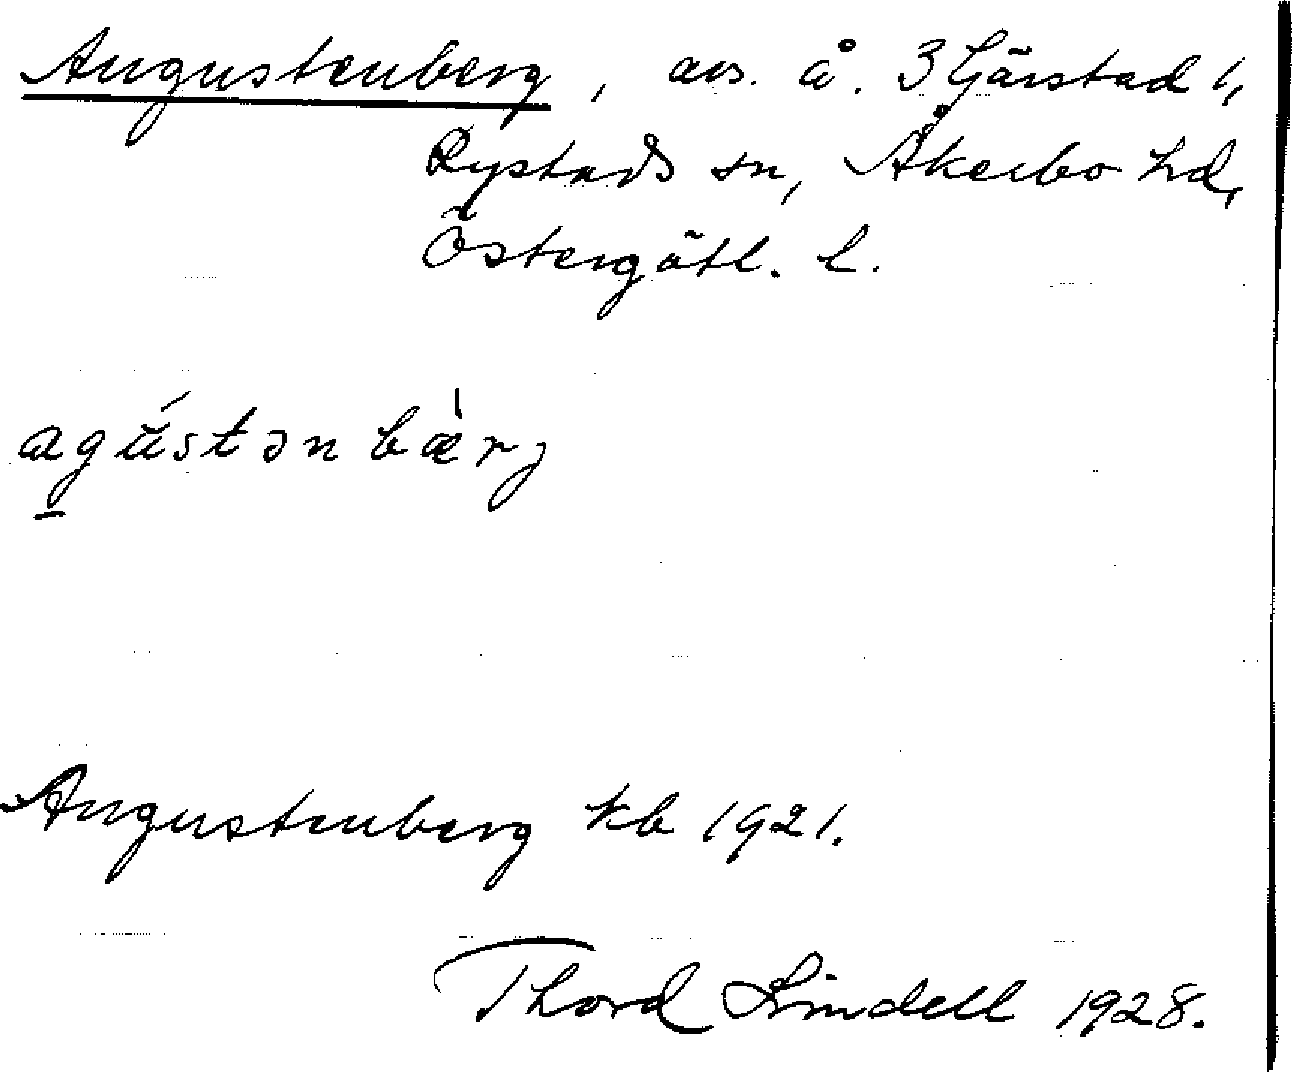 Augustenberg, avs. å. 3 Gärstad 1,
Rystads sn, Åkerbo hd,
Östergötl. l.
agústənbæ̀rj
Augustenberg kb 1921.
Thord Lindell 1928.